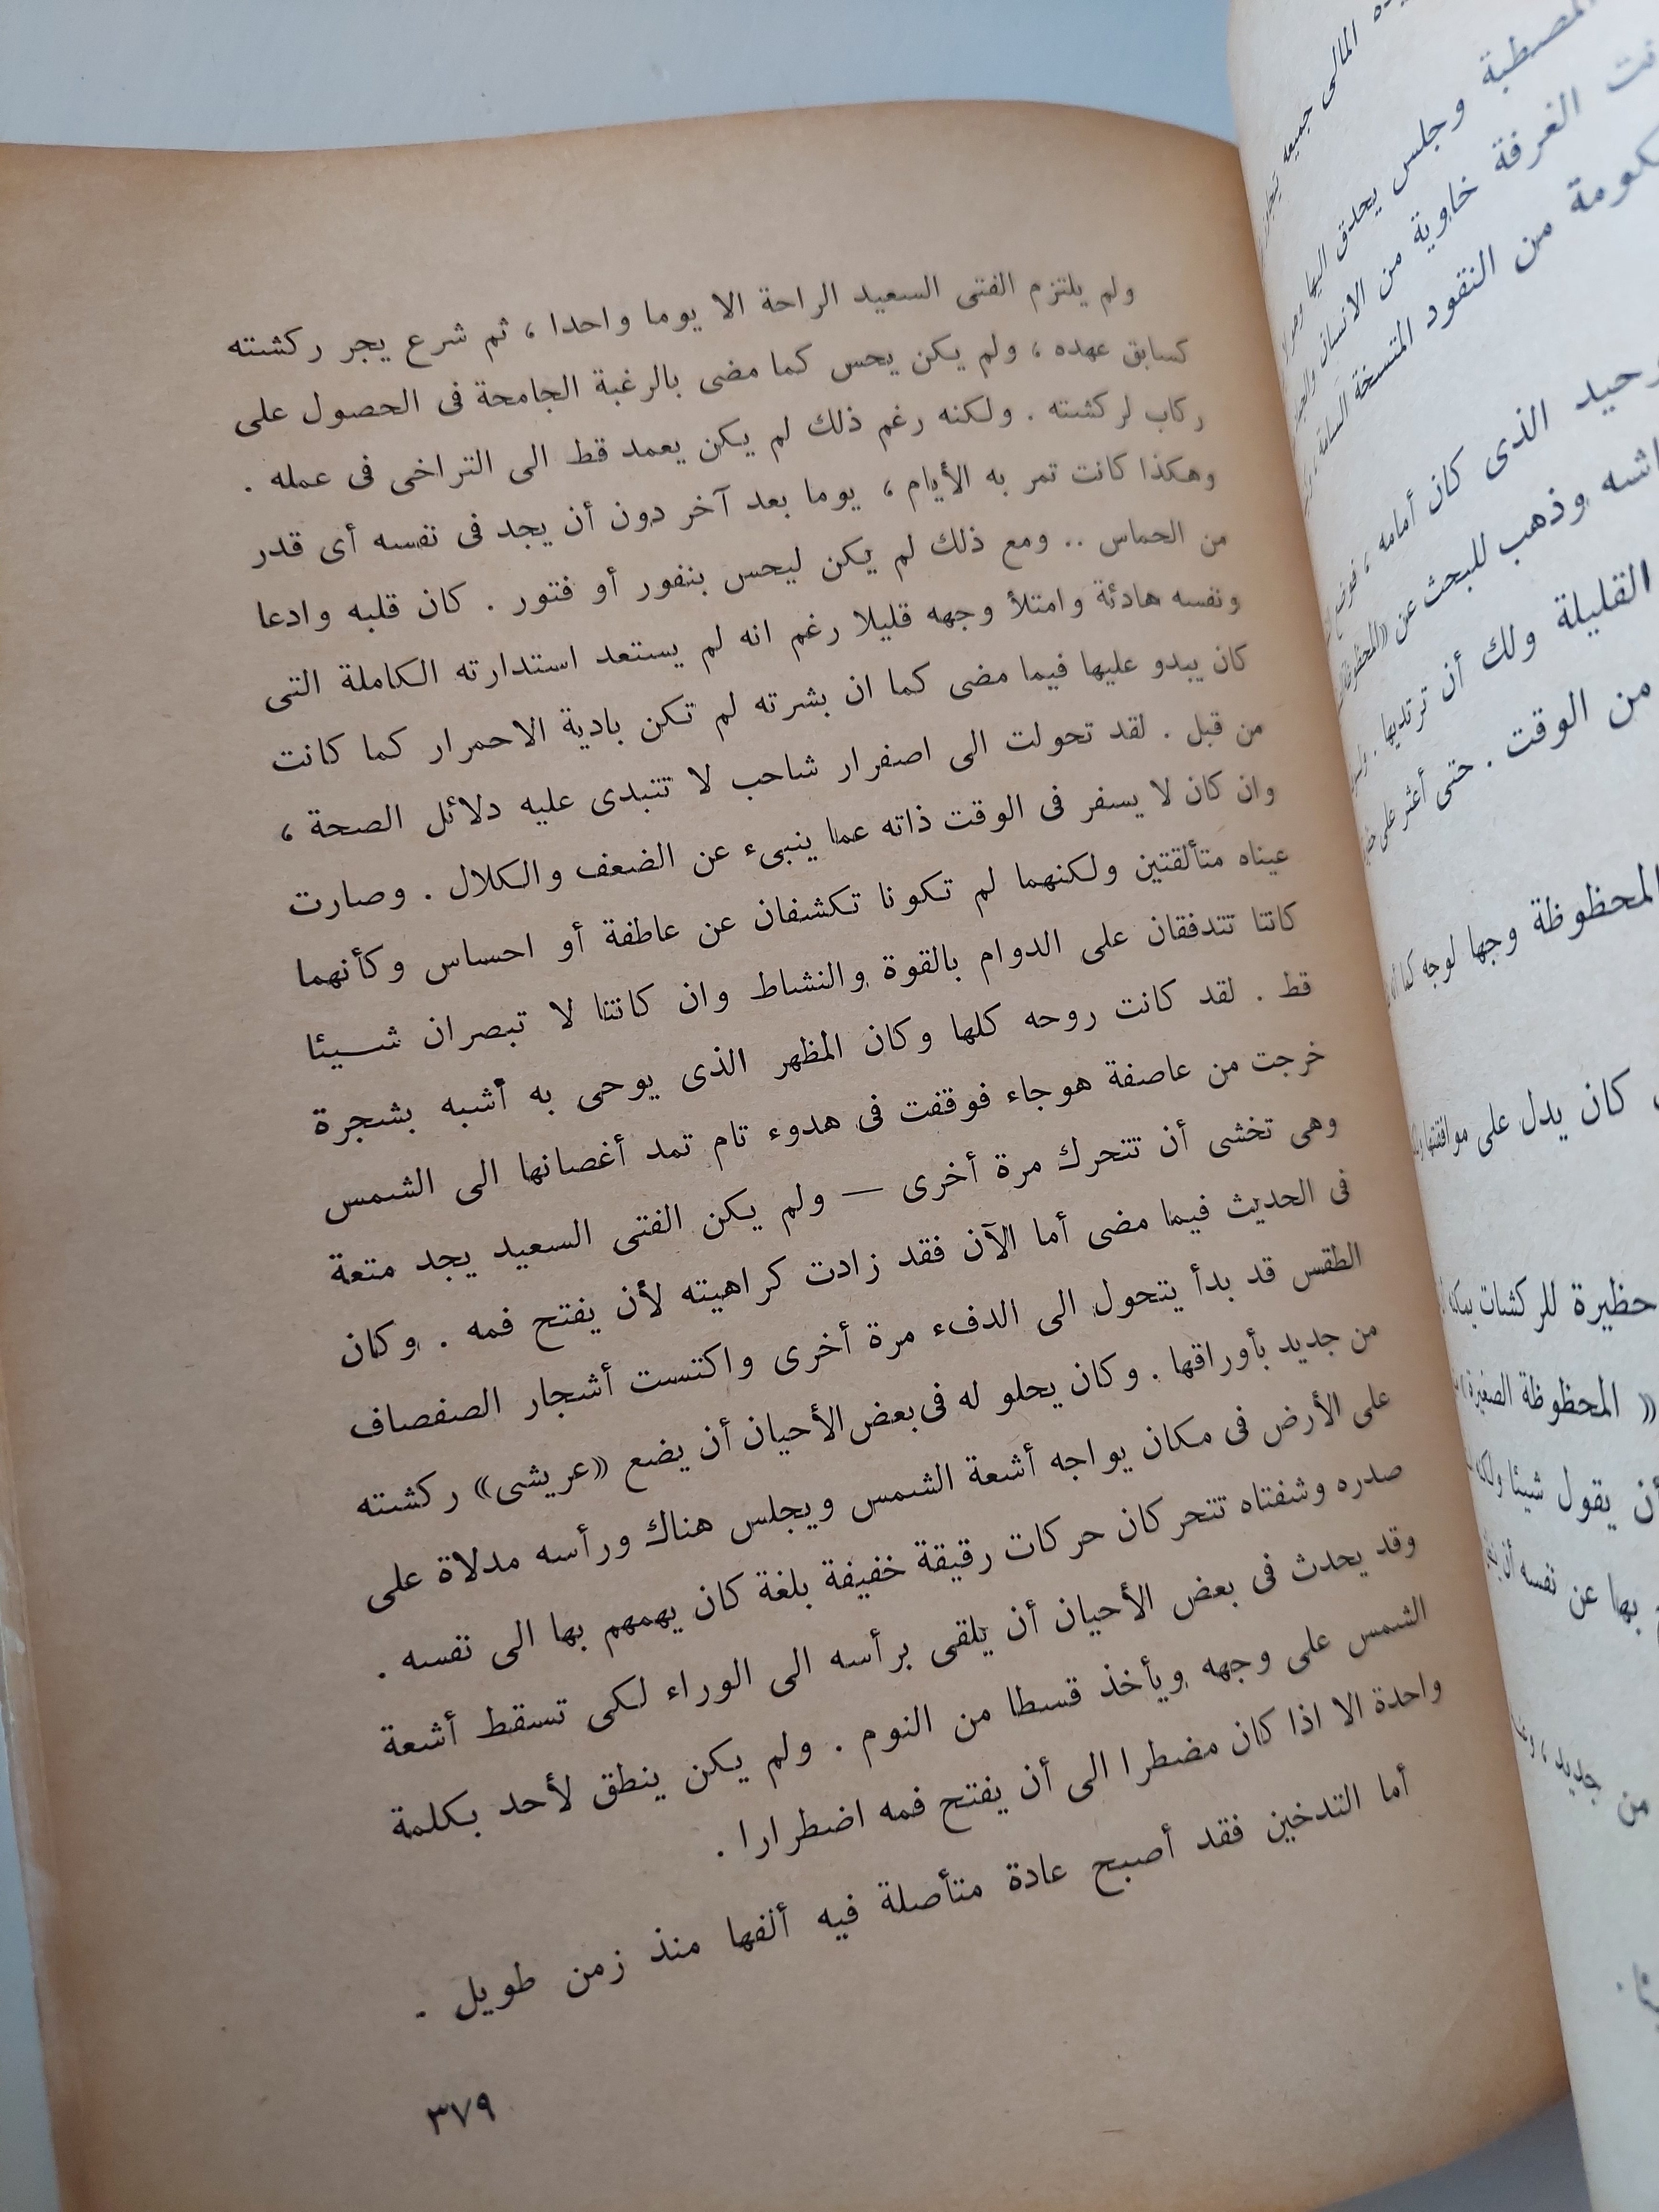 ولم يلتزم الفتى السعيد الراحة الا يوما واحدا ، ثم شرع يجر ركشته
كسابق عهده ، ولم يكن يحس كما مضى بالرغبة الجامحة فى الحصول على
ركاب لركشته . ولكنه رغم ذلك لم يكن يعمد قط الى التراخى فى عمله .
وهكذا كانت تمر به الأيام ، يوما بعد آخر دون أن يجد فى نفسه أى قدر
من الحماس .. ومع ذلك لم يكن ليحس بنفور أو فتور . كان قلبه وادعا
ونفسه هادئة وامتلأ وجهه قليلا رغم انه لم يستعد استدارته الكاملة التى
كان يبدو عليها فيما مضى كما ان بشرته لم تكن بادية الاحمرار كما كانت
من قبل . لقد تحولت الى اصفرار شاحب لا تتبدى عليه دلائل الصحة ،
وان كان لا يسفر فى الوقت ذاته عما ينبىء عن الضعف والكلال . وصارت
عيناه متألقتين ولكنهما لم تكونا تكشفان عن عاطفة أو احساس وكأنهما
كانتا تتدفقان على الدوام بالقوة والنشاط وان كانتا لا تبصران شيئا
قط . لقد كانت روحه كلها وكان المظهر الذى يوحى به أشبه بشجرة
خرجت من عاصفة هوجاء فوقفت فى هدوء تام تمد أغصانها الى الشمس
وهى تخشى أن تتحرك مرة أخرى — ولم يكن الفتى السعيد يجد متعة
فى الحديث فيما مضى أما الآن فقد زادت كراهيته لأن يفتح فمه . وكان
الطقس قد بدأ يتحول الى الدفء مرة أخرى واكتست أشجار الصفصاف
من جديد بأوراقها . وكان يحلو له فى بعض الأحيان أن يضع «عريشى» ركشته
على الأرض فى مكان يواجه أشعة الشمس ويجلس هناك ورأسه مدلاة على
صدره وشفتاه تتحركان حركات رقيقة خفيفة بلغة كان يهمهم بها الى نفسه .
وقد يحدث فى بعض الأحيان أن يلقى برأسه الى الوراء لكى تسقط أشعة
الشمس على وجهه ويأخذ قسطا من النوم . ولم يكن ينطق لأحد بكلمة
واحدة الا اذا كان مضطرا الى أن يفتح فمه اضطرارا .
أما التدخين فقد أصبح عادة متأصلة فيه ألفها منذ زمن طويل .
٣٧٩
المالى جميعه
المصطبة وجلس يحدق اليها
الغرفة خاوية من الانسان
من النقود المتسخة
الذى كان أمامه ،
وذهب للبحث عن
القليلة ولك أن ترتديها .
من الوقت . حتى أعثر على
المحظوظة وجها لوجه
كان يدل على موافقتها
حظيرة للركشات
« المحظوظة الصغيرة »
أن يقول شيئا
بها عن نفسه أن
من جديد ،